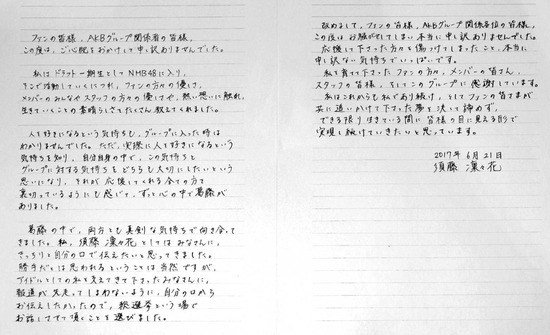 ファンの皆様、AKBグループ関係者の皆様、
この度は、ご心配をおかけして申し訳ありませんでした。
私はドラフト一期生としてNMB48に入り、
そこで活動していくにつれ、ファンの方々の優しさ、
メンバーのみんなやスタッフの方々の優しさや、熱い思いに触れ、
生きていくことの素晴らしさをたくさん教えてくれました。
人を好きになるという気持ちも、グループに入った時は
わかりませんでした。ただ、実際に人を好きになるという
気持ちを知り、自分自身の中で、この気持ちと
グループに対する気持ちもどちらも大切にしたいという
思いになり、それが応援してくれる全ての方を
裏切っているようにも感じて、ずっと心の中で葛藤が
ありました。
葛藤の中で、両方とも真剣な気持ちで向き合って
きました。私、須藤凜々花としてはみなさんに、
きっちりと自分の口で伝えたいと思ってきました。
勝手だとは思われるということは当然ですが、
アイドルとしての私を支えてきて下さったみなさんに、
報道が先走ってしまわないように、自分の口から
お伝えしたかったので、総選挙という場で
お話しさせて頂くことを選びました。
改めまして、ファンの皆様、AKBグループ関係各位の皆様、
この度はお騒がせしてしまい本当に申し訳ありませんでした。
応援して下さった方々を傷つけてしまったこと、本当に
申し訳ない気持ちでいっぱいです。
私を育てて下さったファンの方々、メンバーの皆さん、
スタッフの皆様、そしてこのグループに感謝しています。
私はこれからもNMBであり続け、そしてファンの皆さまが
共に追いかけて下さった夢を決して諦めず、
できる限り生きている間に皆様の目に見える形で
実現し続けていきたいと思っています。
2017年 6月 21日
須藤 凜々花